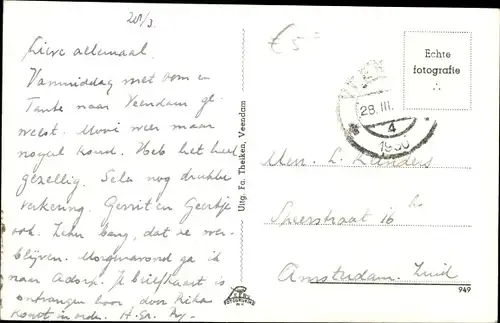 201/3
Lieve allemaal.
Vanmiddag met oom en
Tante naar Veendam ge-
weest. Mooi weer maar
nogal koud. Heb het heel
gezellig. Sela nog drukke
verkering. Gerrit en Geertje
ook. Leken bang, dat ze
blijven. Morgenavond ga ik
naar Adorp. Je briefkaart is
ontvangen hoor door Rika
komt in orde. H. Gr.
Uitg. Fa. Theiken, Veendam
£ 5
Echte
fotografie
28. III.
4
1950
Men. L.
Speerstraat 16 hs
Amsterdam. Zuid
949